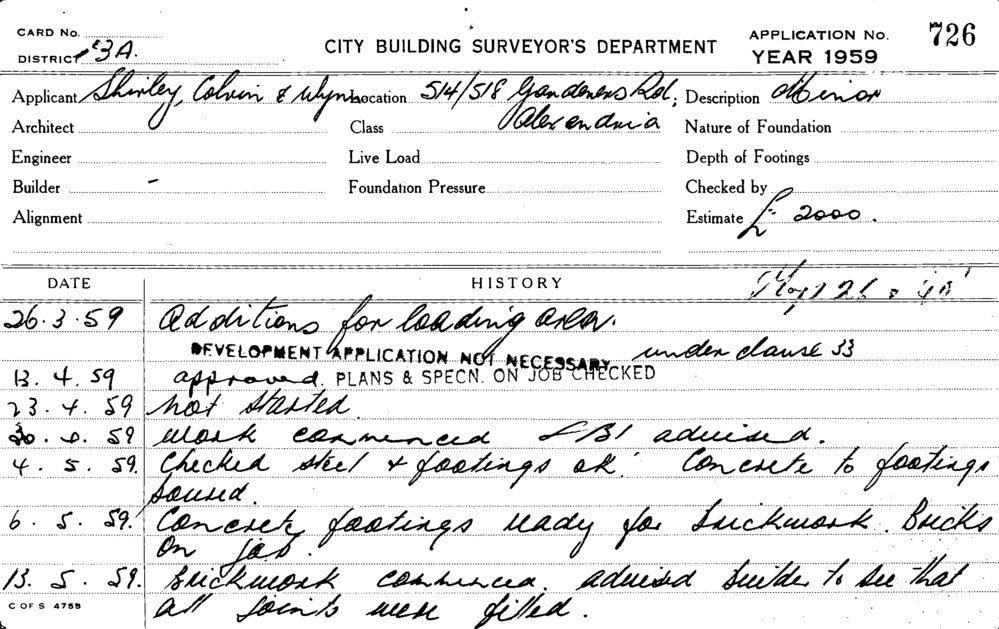 CARD No.
DISTRICT 3A.
CITY BUILDING SURVEYOR'S DEPARTMENT
APPLICATION No. 726
YEAR 1959
Applicant Shirley, Colvin & Wynne Location 514/518 Gardeners Rd; Description Minor
Architect Class Alexandria Nature of Foundation
Engineer Live Load Depth of Footings
Builder - Foundation Pressure Checked by
Alignment Estimate £ 2000.
DATE HISTORY
26.3.59 Additions for loading area.
DEVELOPMENT APPLICATION NOT NECESSARY under clause 33
13.4.59 approved. PLANS & SPECN. ON JOB CHECKED
23.4.59 Not started.
59 work commenced advised.
4.5.59. Checked steel & footings ok. Concrete to footings
poured.
6.5.59. Concrete footings ready for brickwork. Bricks
on job.
13.5.59. Brickwork commenced. advised builder to see that
all joints were filled.
C OF S 4755